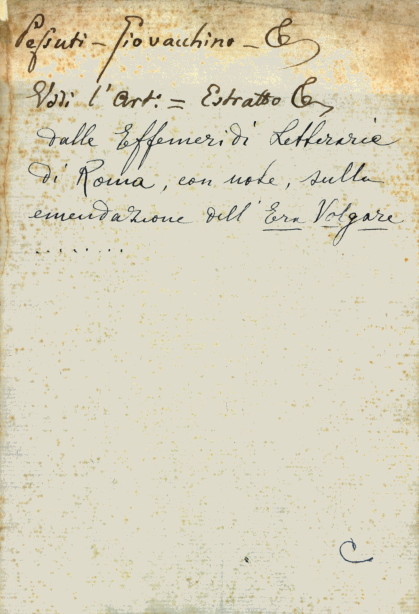 Pessuti - Giovacchino - &
Vedi l'Art: = Estratto &
dalle Effemeridi Letterarie
di Roma, con note, sulla
emendazione dell'Era Volgare
........
C